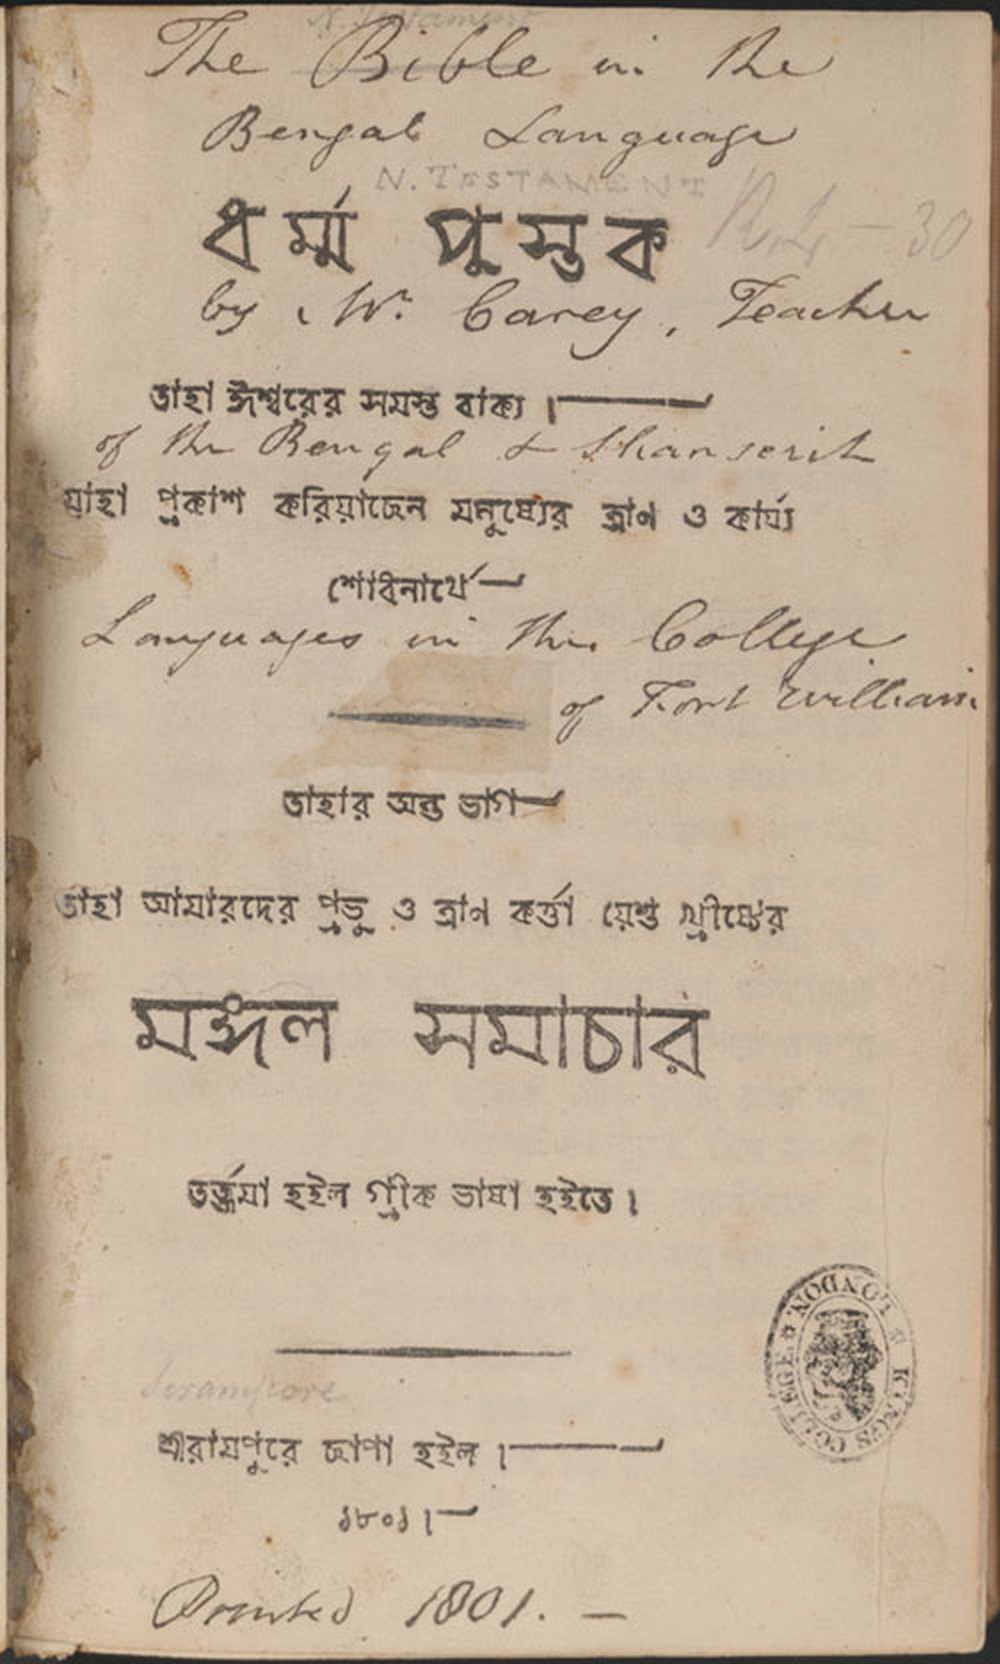 N. Testament
The Bible in the
Bengal Language
N. TESTAMENT
ধর্ম্ম পুস্তক
R.L. – 30
by Wm. Carey, Teacher
তাহা ঈশ্বরের সমস্ত বাক্য ।—
of the Bengal & Shanscrit
যাহা প্রকাশ করিয়াছেন মনুষ্যের ত্রাণ ও কার্য্য
শোধনার্থে—
Languages in the College
of Fort William
তাহার অন্ত ভাগ—
তাহা আমারদের প্রভু ও ত্রাণ কর্ত্তা য়েশু খ্রীষ্টের
মঙ্গল সমাচার
তর্জ্জমা হইল গ্রীক ভাষা হইতে ।
KING'S COLLEGE LONDON
Serampore
শ্রীরামপুরে ছাপা হইল ।—
১৮০১ ।—
Printed 1801. —